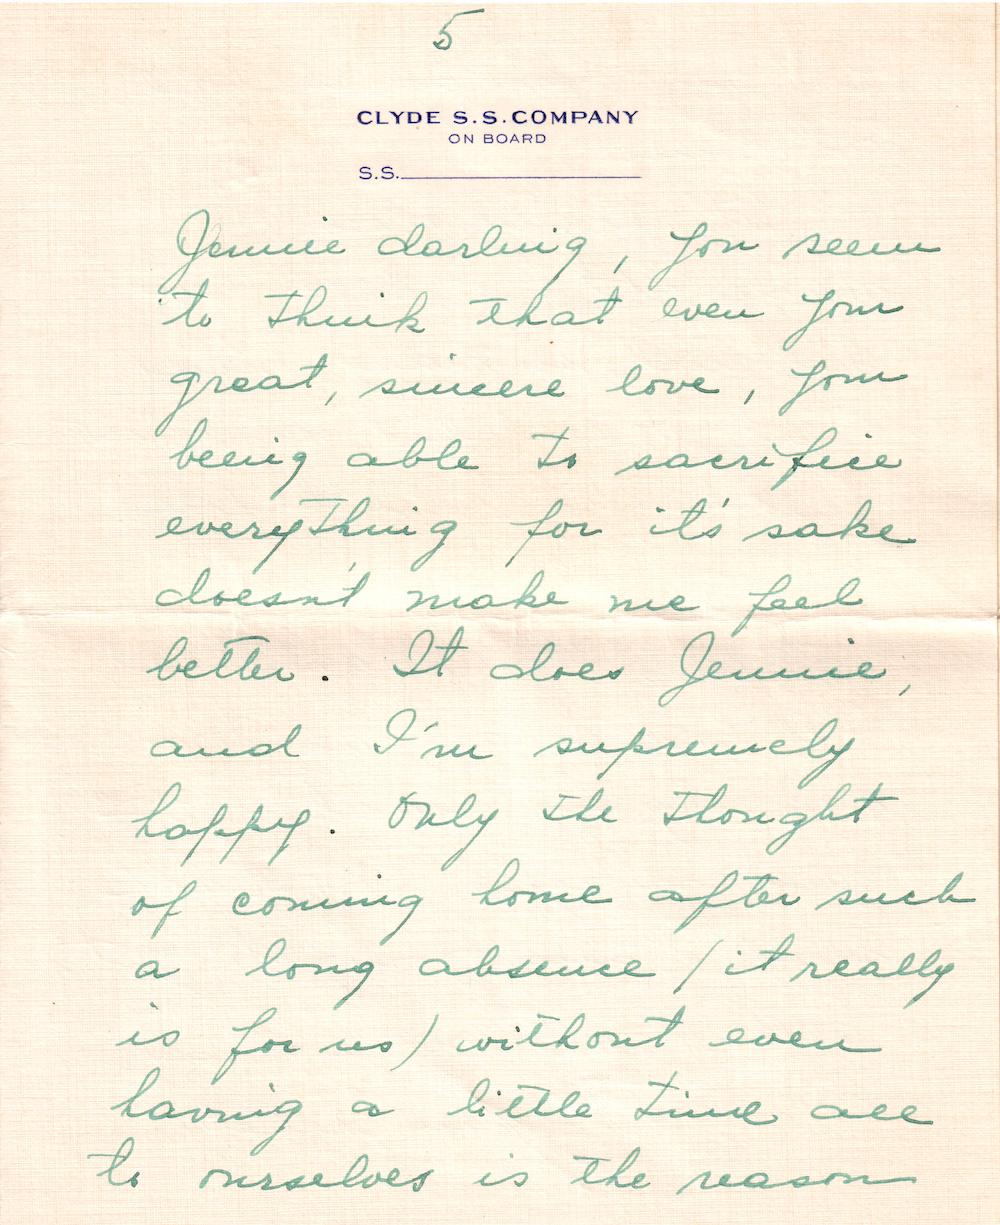 5
CLYDE S.S. COMPANY
ON BOARD
S.S.
Jennie darling, you seem
to think that even your
great, sincere love, your
being able to sacrifice
everything for it's sake
doesn't make me feel
better. It does Jennie,
and I'm supremely
happy. Only the thought
of coming home after such
a long absence (it really
is for us) without even
having a little time all
to ourselves is the reason